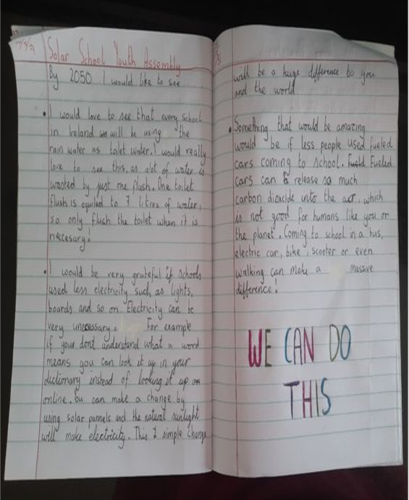 Solar School Youth Assembly
By 2050 I would like to see
• I would love to see that every school
in Ireland will be using the
rain water as toilet water. I would really
love to see this, as alot of water is
wasted by just one flush. One toilet
flush is equiled to 7 litres of water,
so only flush the toilet when it is
necesary.
• I would be very grateful if schools
used less electricity such as lights,
boards and so on. Electricity can be
very unnecessary. For example
if your dont understand what a word
means you can look it up in your
dictionary instead of looking it up on
online. You can make a change by
using solar pannels and the natural sunlight
will make electricity. This simple change
will be a huge difference to you
and the world.
• Something that would be amazing
would be if less people used fueled
cars coming to school. Fueled
cars can release so much
carbon dioxide into the air, which
is not good for humans like you or
the planet. Coming to school in a bus,
electric car, bike, scooter or even
walking can make a massive
difference!
WE CAN DO
THIS